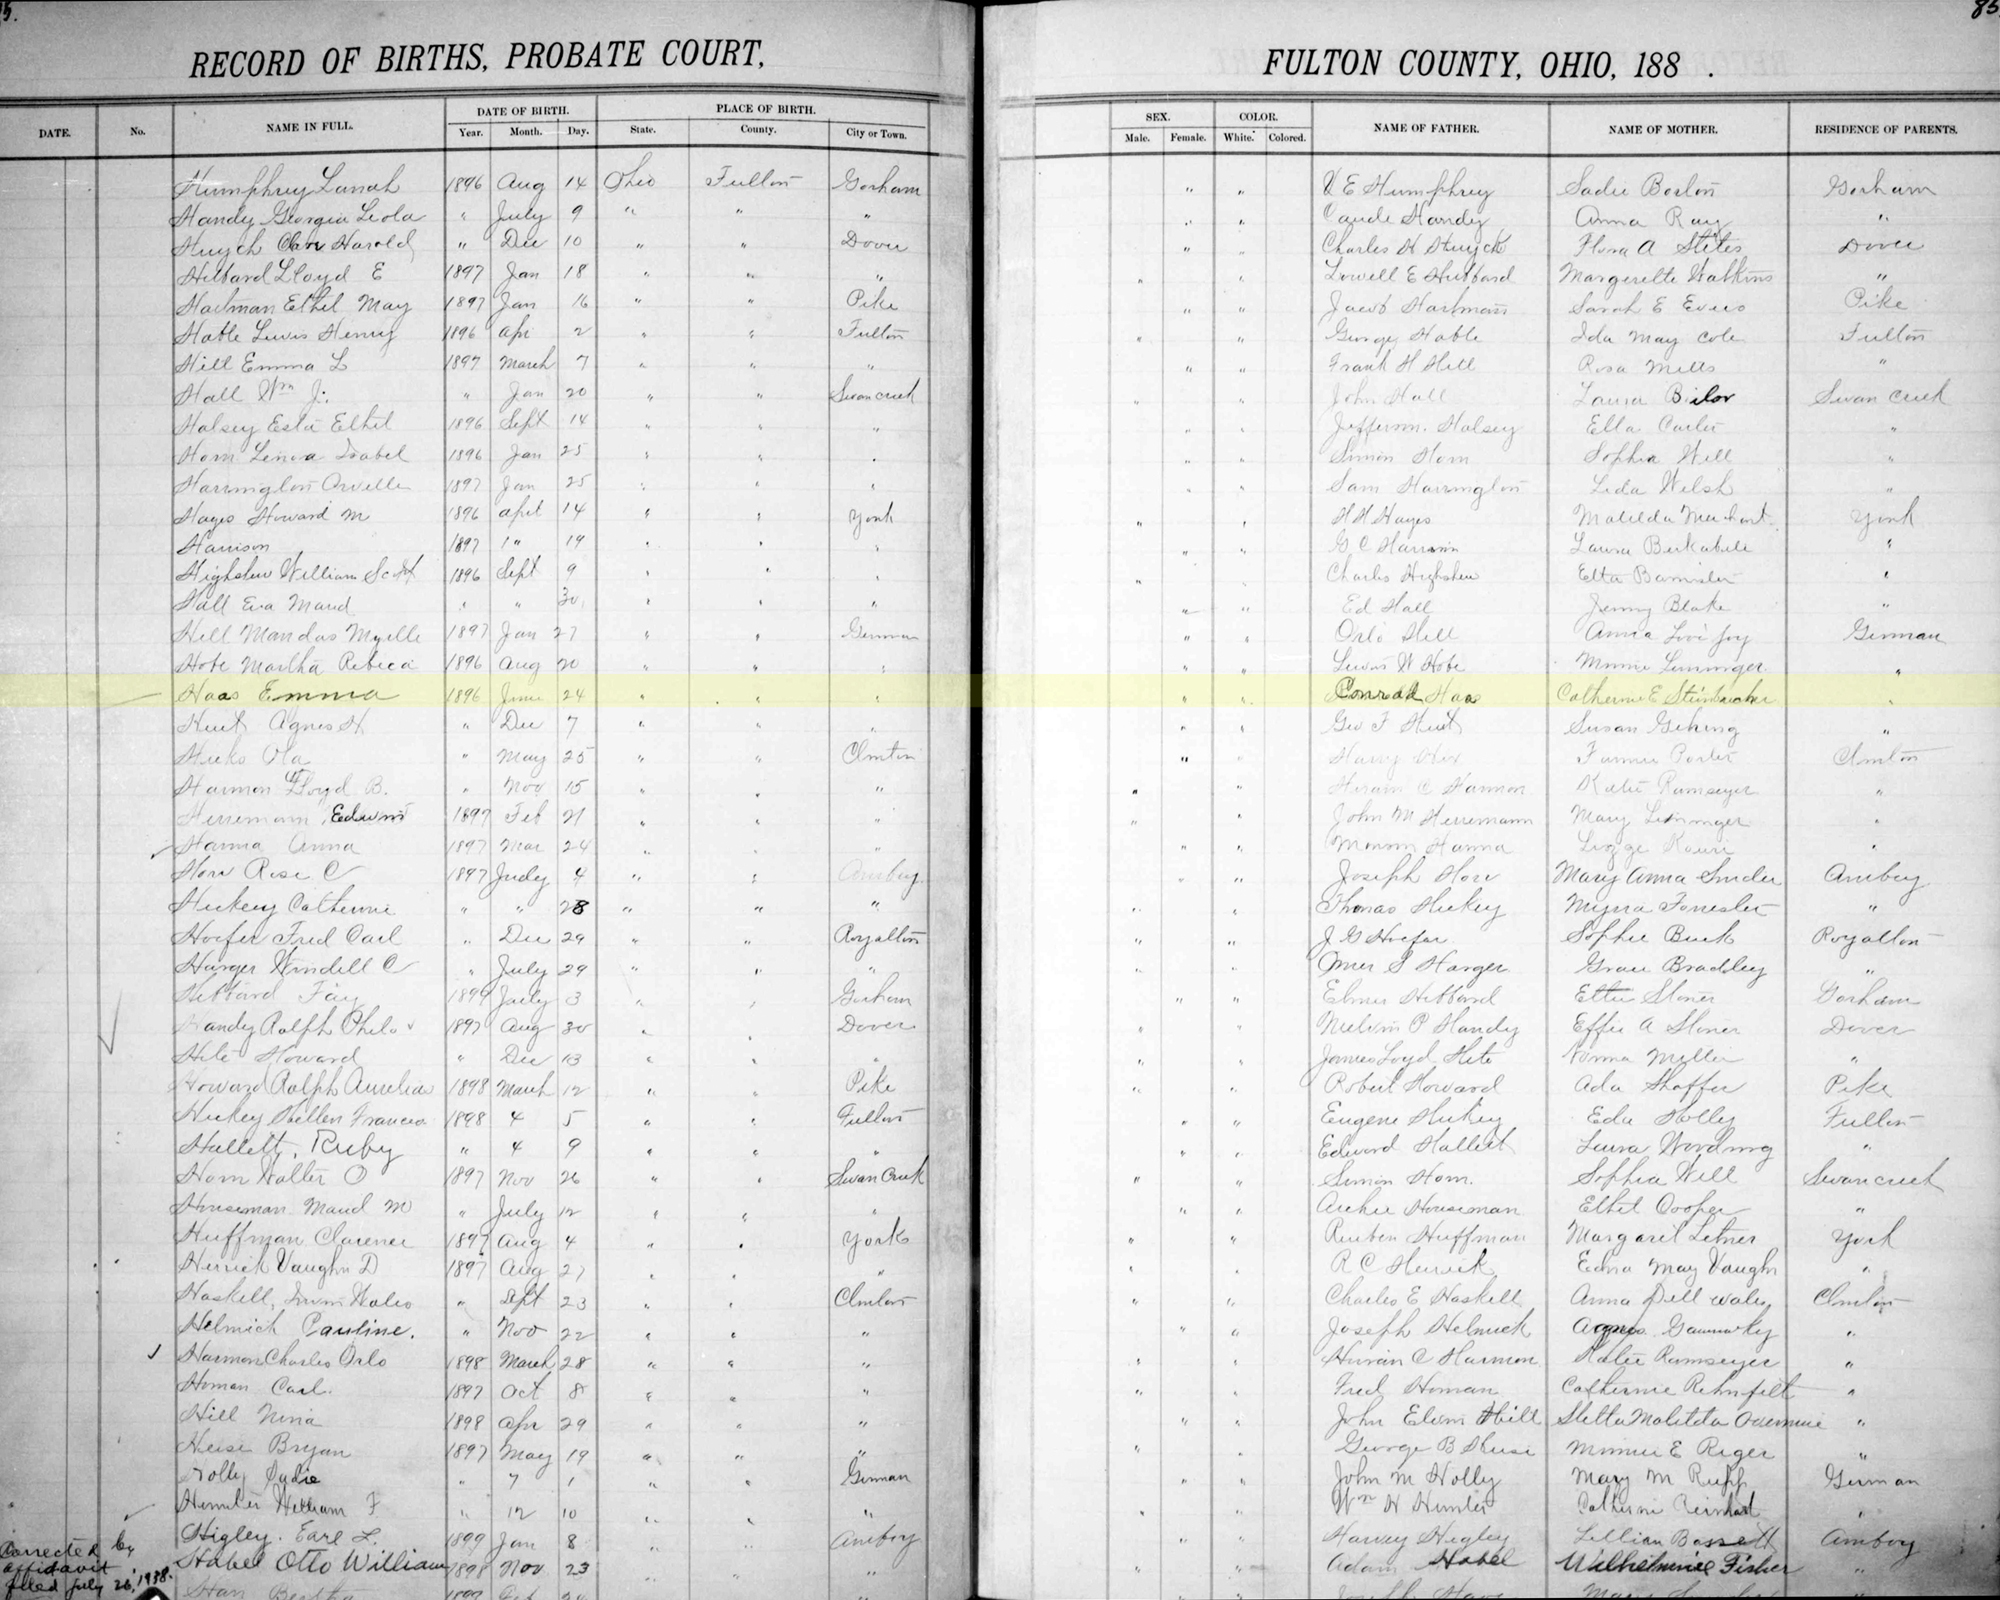 85.
RECORD OF BIRTHS, PROBATE COURT, FULTON COUNTY, OHIO, 188 .
DATE. No. NAME IN FULL. DATE OF BIRTH. Year. Month. Day. PLACE OF BIRTH. State. County. City or Town. SEX. Male. Female. COLOR. White. Colored. NAME OF FATHER. NAME OF MOTHER. RESIDENCE OF PARENTS.
Humphrey Lunah 1896 Aug 14 Ohio Fulton Gorham " " V E Humphrey Sadie Boston Gorham
Handy Georgia Leola " July 9 " " " " " Handy Anna Ray "
Harold " Dec 10 " " Dover " " Charles H Flora A Stites Dover
Hibbard Lloyd E 1897 Jan 18 " " " " " Lowell E Hibbard Margerette Watkins "
Hartman Ethel May 1897 Jan 16 " " Pike " " Jacob Hartman Sarah E Evers Pike
Hable Lewis Henry 1896 Apr 2 " " Fulton " " George Hable Ida May Cole Fulton
Hill Emma L 1897 March 7 " " " " " Frank H Hill Rosa Mills "
Hall Wm J. " Jan 20 " " Swan creek " " John Hall Laura Swan Creek
Halsey Esta Ethel 1896 Sept 14 " " " " " Jefferson Halsey Ella Carter "
Horn Lenora Isabel 1896 Jan 25 " " " " " Simon Horn Sophia Will "
Harrington Orville 1897 Jan 25 " " " " " Sam Harrington Leda Welsh "
Hayes Howard M 1896 April 14 " " York " " H H Hayes Matilda York
Harrison 1897 1" 19 " " " " " G C Harrison Laura "
William Scott 1896 Sept 9 " " " " " Charles Etta Bannister "
Hall Eva Maud " " 30 " " " " " Ed Hall Jenny Blake "
Hill Mandas Myrtle 1897 Jan 27 " " German " " Orlo Hill Anna German
Hobe Martha Rebeca 1896 Aug 20 " " " " " Lewis W Hobe Minnie Leininger "
Haas Emma 1896 June 24 " " " " " Conrad Haas Catherine E Steinbrecher "
Agnes H " Dec 7 " " " " " Geo F Susan Gehring "
Hicks Ola " May 25 " " Clinton " " Harry Fannie Porter Clinton
Harmon Floyd B. " Nov 15 " " " " " Hiram C Harmon Katie Ramseyer "
Herremann, Edwin 1897 Feb 21 " " " " " John M Herremann Mary Leininger "
Hanna Anna 1897 Mar 24 " " " " " Hanna "
Rose C 1897 July 4 " " Amboy " " Joseph Mary Anna Snider Amboy
Hickey Catherine " " 28 " " " " " Thomas Hickey Myrra Forrester "
Hoefer Fred Carl " Dec 29 " " Royalton " " J G Hoefer Sophie Buck Royalton
Harger Windell C " July 29 " " " " " S Harger Grace Bradley "
Hibbard Fay 1899 July 3 " " Gorham " " Elmer Hibbard Stoner Gorham
Handy Ralph Philo 1897 Aug 30 " " Dover " " Melvin P Handy Effie A Stoner Dover
Hite Howard " Dec 13 " " " " " James Loyd Hite Norma Miller "
Howard Ralph Aurelius 1898 March 12 " " Pike " " Robert Howard Ada Shaffer Pike
Hickey Hellen Frances 1898 4 5 " " Fulton " " Eugene Hickey Eda Holly Fulton
Hallett, Ruby " 4 9 " " " " " Edward Hallett Laura Wooding "
Horn Walter O 1897 Nov 26 " " Swan Creek " " Simon Horn. Sophia Will Swan creek
Houseman Maud M " July 12 " " " " " Archie Houseman Ethel Cooper "
Huffman Clarence 1897 Aug 4 " " York " " Reuben Huffman Margaret Letner York
Herrick Vaughn D 1897 Aug 27 " " " " " R C Herrick Edna May Vaughn "
Haskell, Irwin Wales " Sept 23 " " Clinton " " Charles E Haskell Anna Dell Wales Clinton
Helmick Pauline. " Nov 22 " " " " " Joseph Helmick Agnes "
Harmon Charles Orlo 1898 March 28 " " " " " Hiram C Harmon Katie Ramseyer "
Homan Carl. 1897 Oct 8 " " " " " Fred Homan Catherine Rehnfelt "
Hill Nina 1898 Apr 29 " " " " " John Elvin Hill Stella Matilda "
Heise Bryan 1897 May 19 " " " " " George B Heise Minnie E Rieger "
Holly Sadie " 7 1 " " German " " John M Holly Mary M Rupp German
Hunter William F " 12 10 " " " " " Wm H Hunter Catherine "
Higley, Earl L. 1899 Jan 8 " " Amboy " " Harvey Higley Lillian Bassett Amboy
Corrected by affidavit filed July 26, 1938. Habel Otto William 1898 Nov 23 " " " " " Adam Habel Wilhelmine Fisher "
Bertha 1897 Feb 24 Joseph